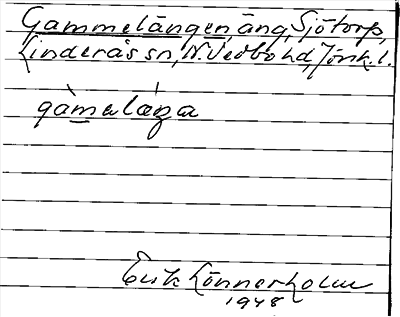 Gammelängen, äng, Sjötorp,
Linderås sn, N. Vedbo hd, Jönk. l.
gàmalǽŋa
Erik Lönnerholm
1948